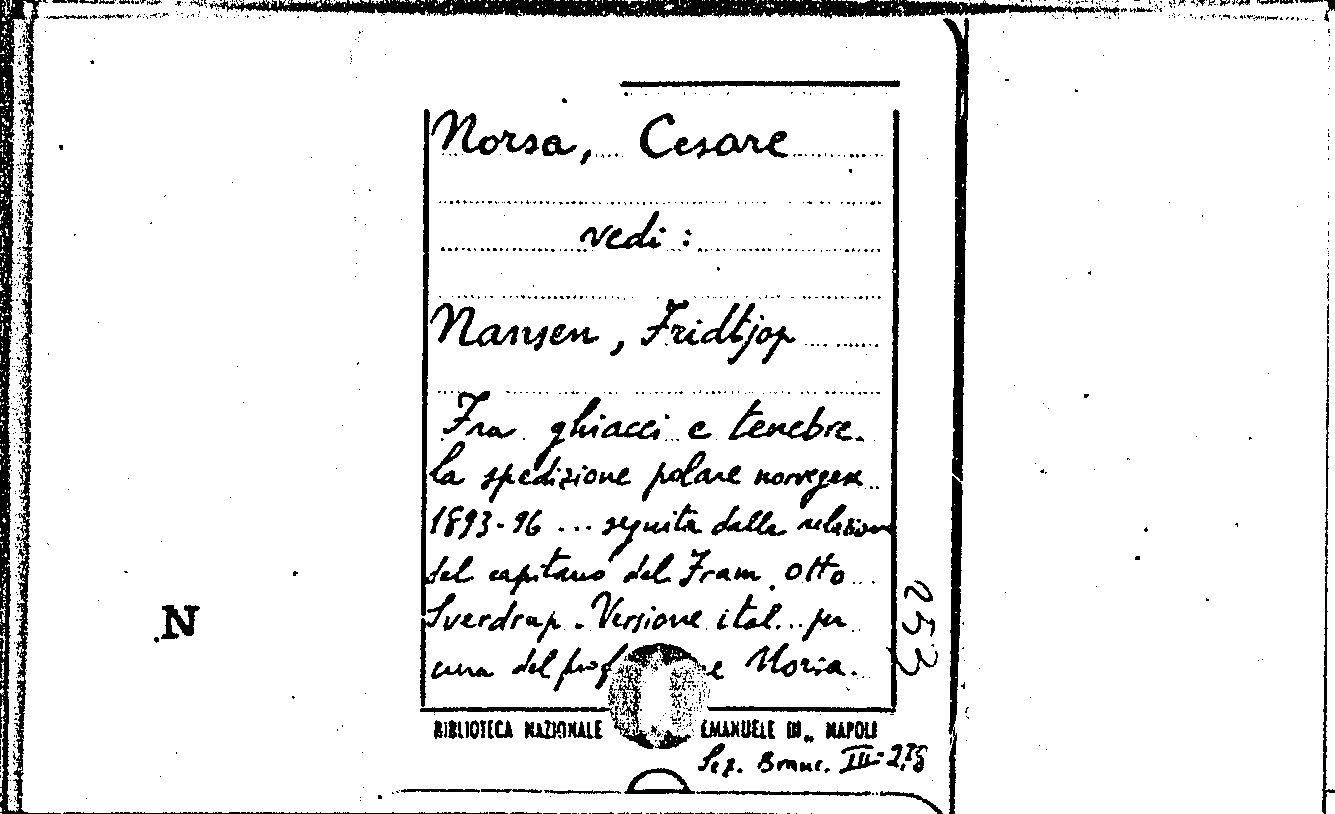 Norsa, Cesare
vedi :
Nansen, Fridtjop
Fra ghiacci e tenebre.
la spedizione polare norvegese
1893-96 ... seguita dalla relazione
del capitano del Fram. Otto
Sverdrup. Versione ital... per
cura del prof e Norsa.
N
253
BIBLIOTECA NAZIONALE EMANUELE III„ NAPOLI
Sez. Branc.